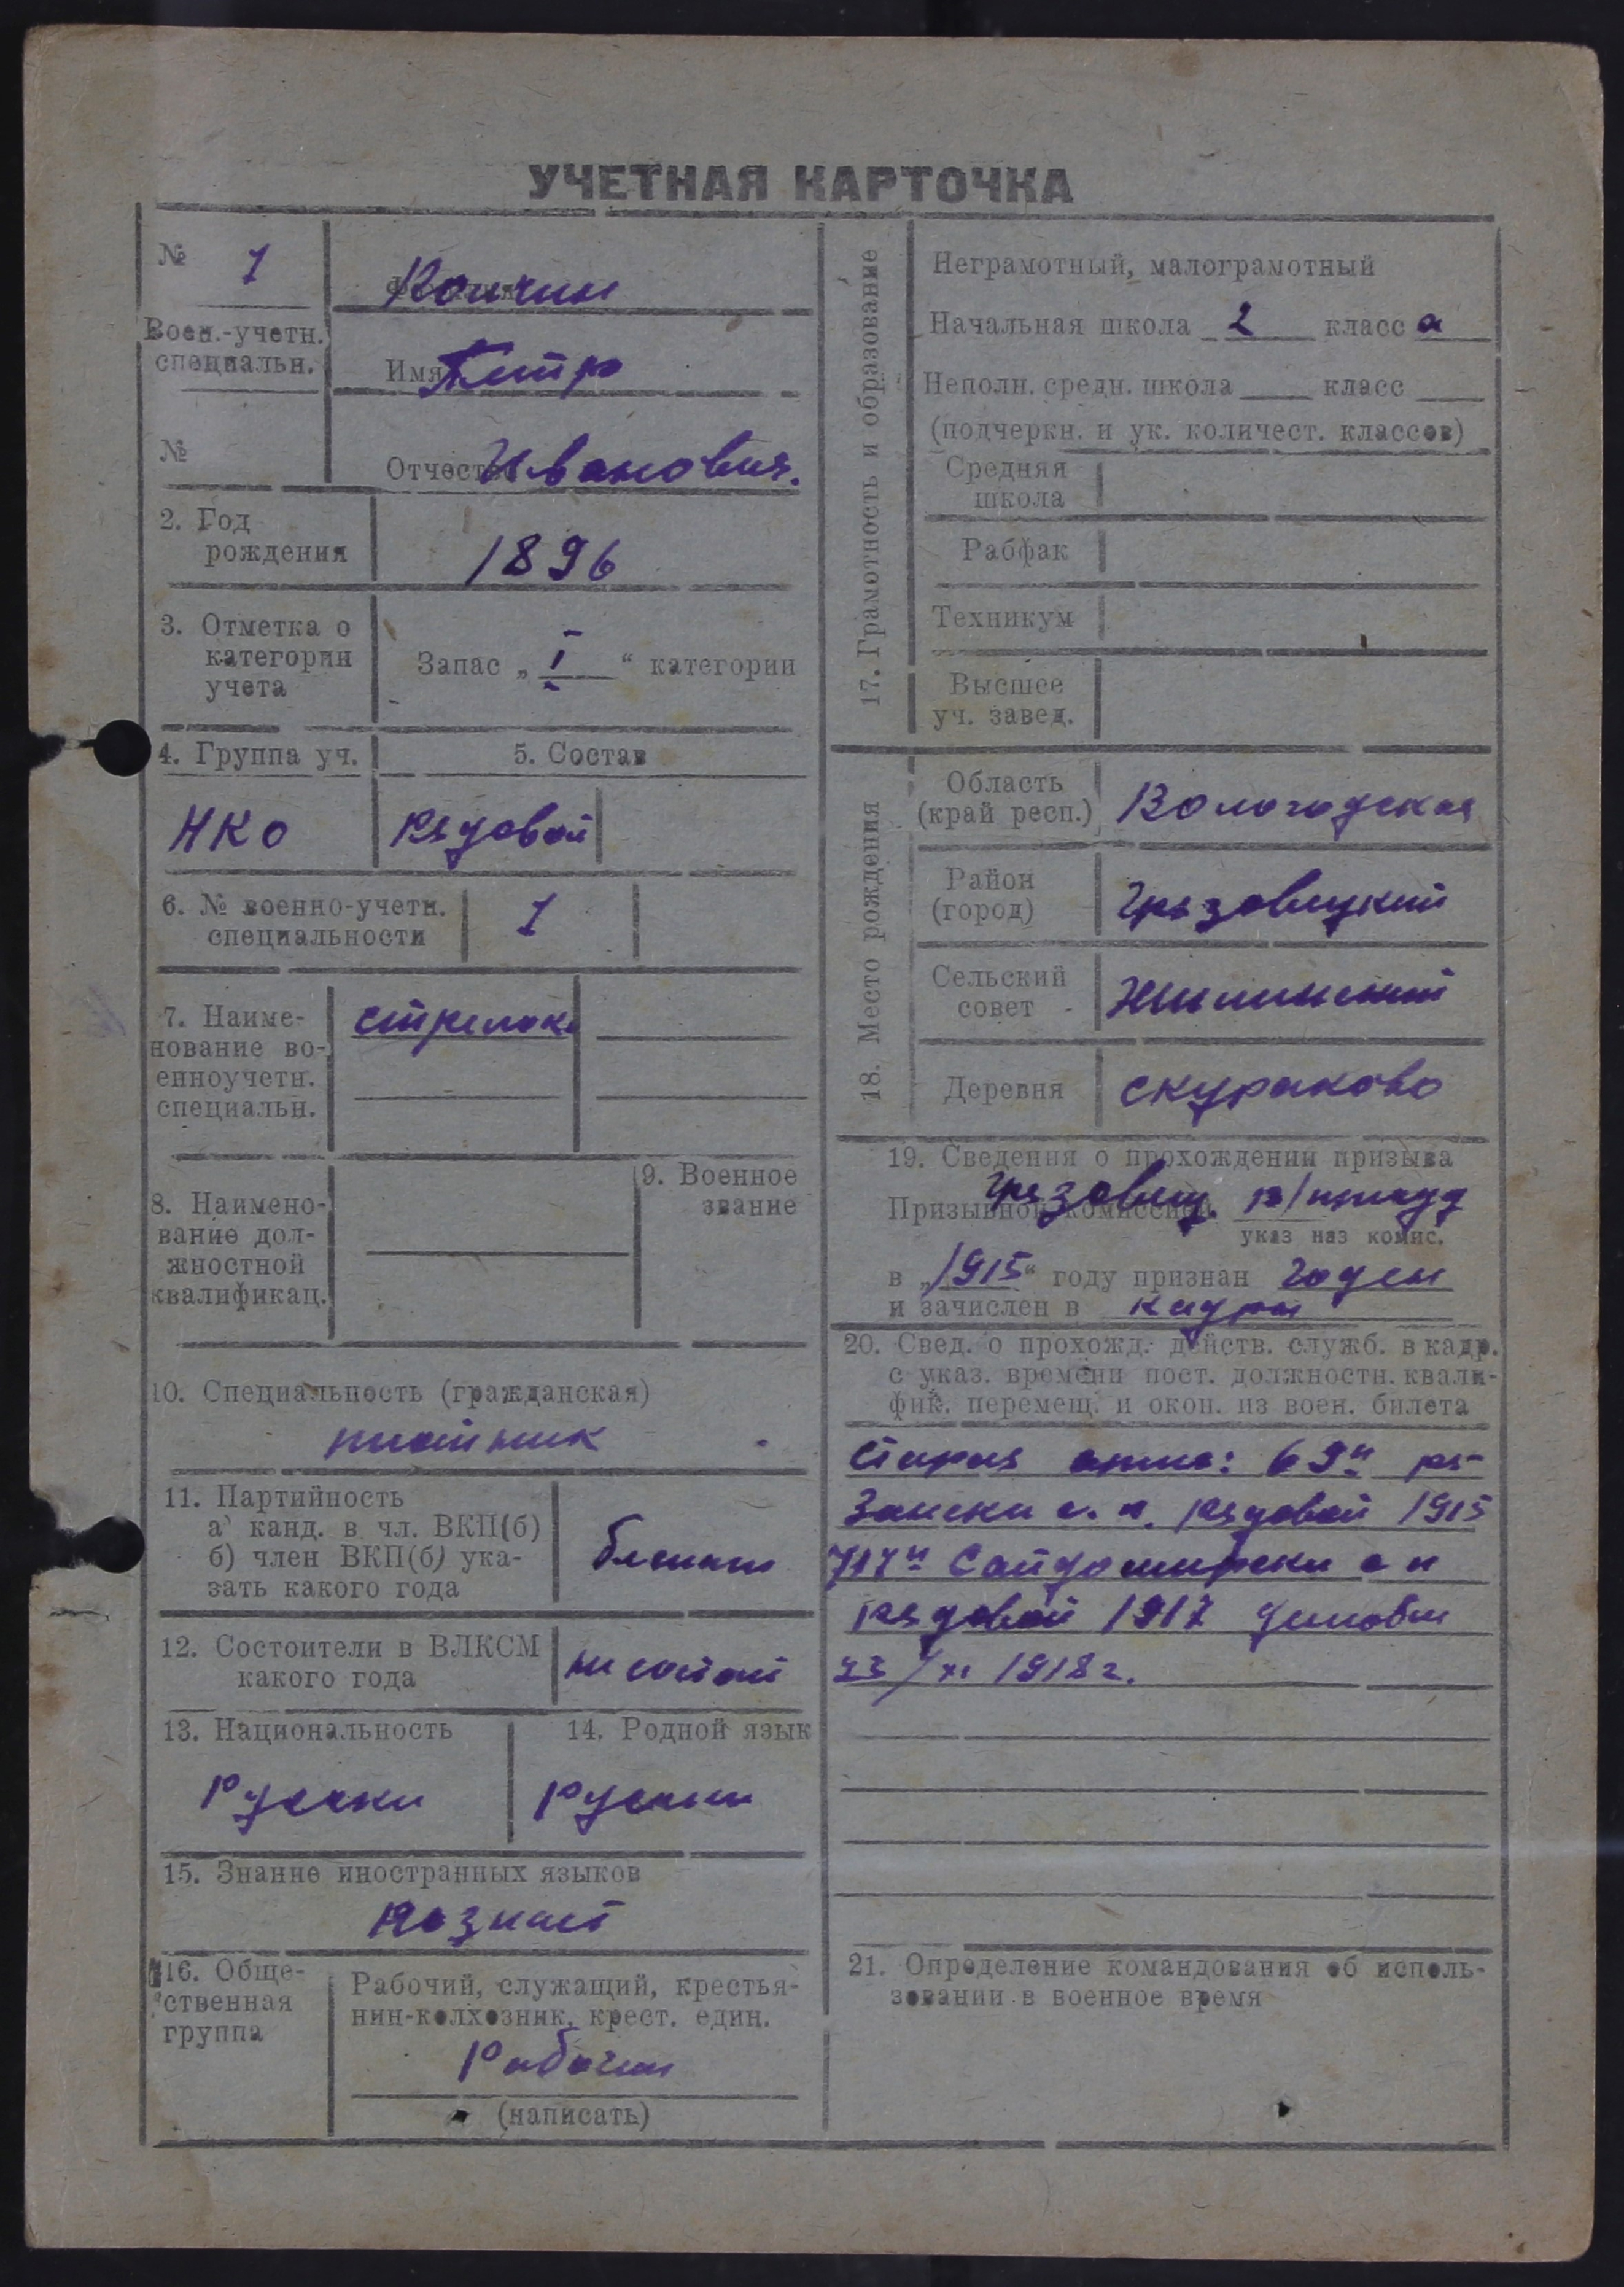 УЧЕТНАЯ КАРТОЧКА
№ 1
Воен.-учетн.
специальн.
№
Фамилия Кончин
Имя Петр
Отчество Иванович.
2. Год
рождения
1896
3. Отметка о
категории
учета
Запас „ I “ категории
4. Группа уч.
5. Состав
НКО
Рядовой
6. № военно-учетн.
специальности
1
7. Наиме-
нование во-
енноучетн.
специальн.
стрелок
8. Наимено-
вание дол-
жностной
квалификац.
9. Военное
звание
10. Специальность (гражданская)
11. Партийность
а) канд. в чл. ВКП(б)
б) член ВКП(б) ука-
зать какого года
12. Состоители в ВЛКСМ
какого года
не состоит
13. Национальность
Русски
14. Родной язык
Русский
15. Знание иностранных языков
Незнает
16. Обще-
ственная
группа
Рабочий, служащий, крестья-
нин-колхозник, крест. един.
Рабочий
(написать)
17. Грамотность и образование
Неграмотный, малограмотный
Начальная школа 2 класс а
Неполн. средн. школа класс
(подчеркн. и ук. количест. классов)
Средняя
школа
Рабфак
Техникум
Высшее
уч. завед.
18. Место рождения
Область
(край респ.)
Вологодская
Район
(город)
Грязовецкий
Сельский
совет
Жилинский
Деревня
Скураково
19. Сведения о прохождении призыва
Призывной комиссией Грязовец.
указ наз комис.
в „1915“ году признан годен
и зачислен в кадры
20. Свед. о прохожд. действ. служб. в кадр.
с указ. времени пост. должностн. квали-
фик. перемещ. и окон. из воен. билета
Старая армия: 69й ря-
зански с. п. Рядовой 1915
717й Сандомирски с п
Рядовой 1917
23/XI 1918 г.
21. Определение командования об исполь-
зовании в военное время